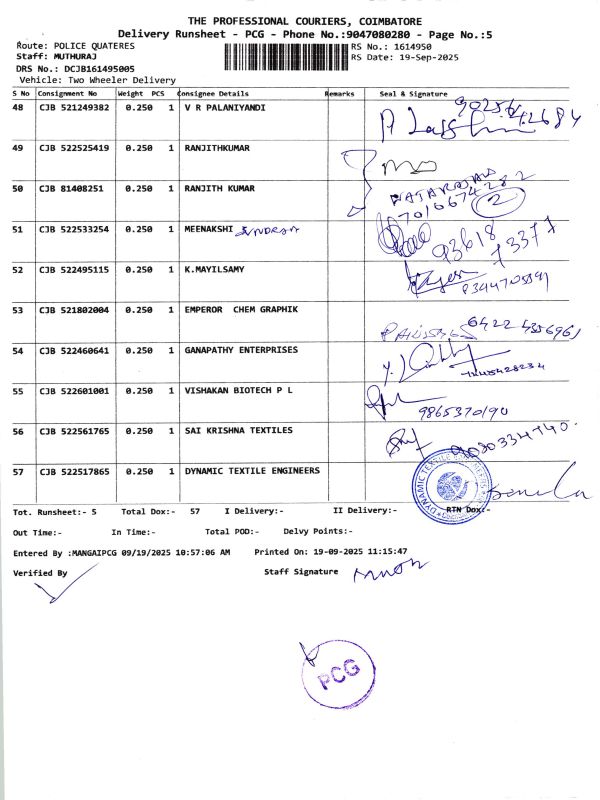 THE PROFESSIONAL COURIERS, COIMBATORE
Delivery Runsheet - PCG - Phone No.:9047080280 - Page No.:5
Route: POLICE QUATERES RS No.: 1614950
Staff: MUTHURAJ RS Date: 19-Sep-2025
DRS No.: DCJB161495005
Vehicle: Two Wheeler Delivery
S No Consignment No Weight PCS Consignee Details Remarks Seal & Signature
48 CJB 521249382 0.250 1 V R PALANIYANDI
49 CJB 522525419 0.250 1 RANJITHKUMAR
50 CJB 81408251 0.250 1 RANJITH KUMAR NATARAJAN
7010674282 2
51 CJB 522533254 0.250 1 MEENAKSHI 93618
73377
52 CJB 522495115 0.250 1 K.MAYILSAMY
53 CJB 521802004 0.250 1 EMPEROR CHEM GRAPHIK
54 CJB 522460641 0.250 1 GANAPATHY ENTERPRISES
55 CJB 522601001 0.250 1 VISHAKAN BIOTECH P L
9865370190
56 CJB 522561765 0.250 1 SAI KRISHNA TEXTILES 9030334740.
57 CJB 522517865 0.250 1 DYNAMIC TEXTILE ENGINEERS
DYNAMIC TEXTILE ENGINEERS
Tot. Runsheet:- 5 Total Dox:- 57 I Delivery:- II Delivery:- RTN Dox:-
Out Time:- In Time:- Total POD:- Delvy Points:-
Entered By :MANGAIPCG 09/19/2025 10:57:06 AM Printed On: 19-09-2025 11:15:47
Verified By Staff Signature
PCG